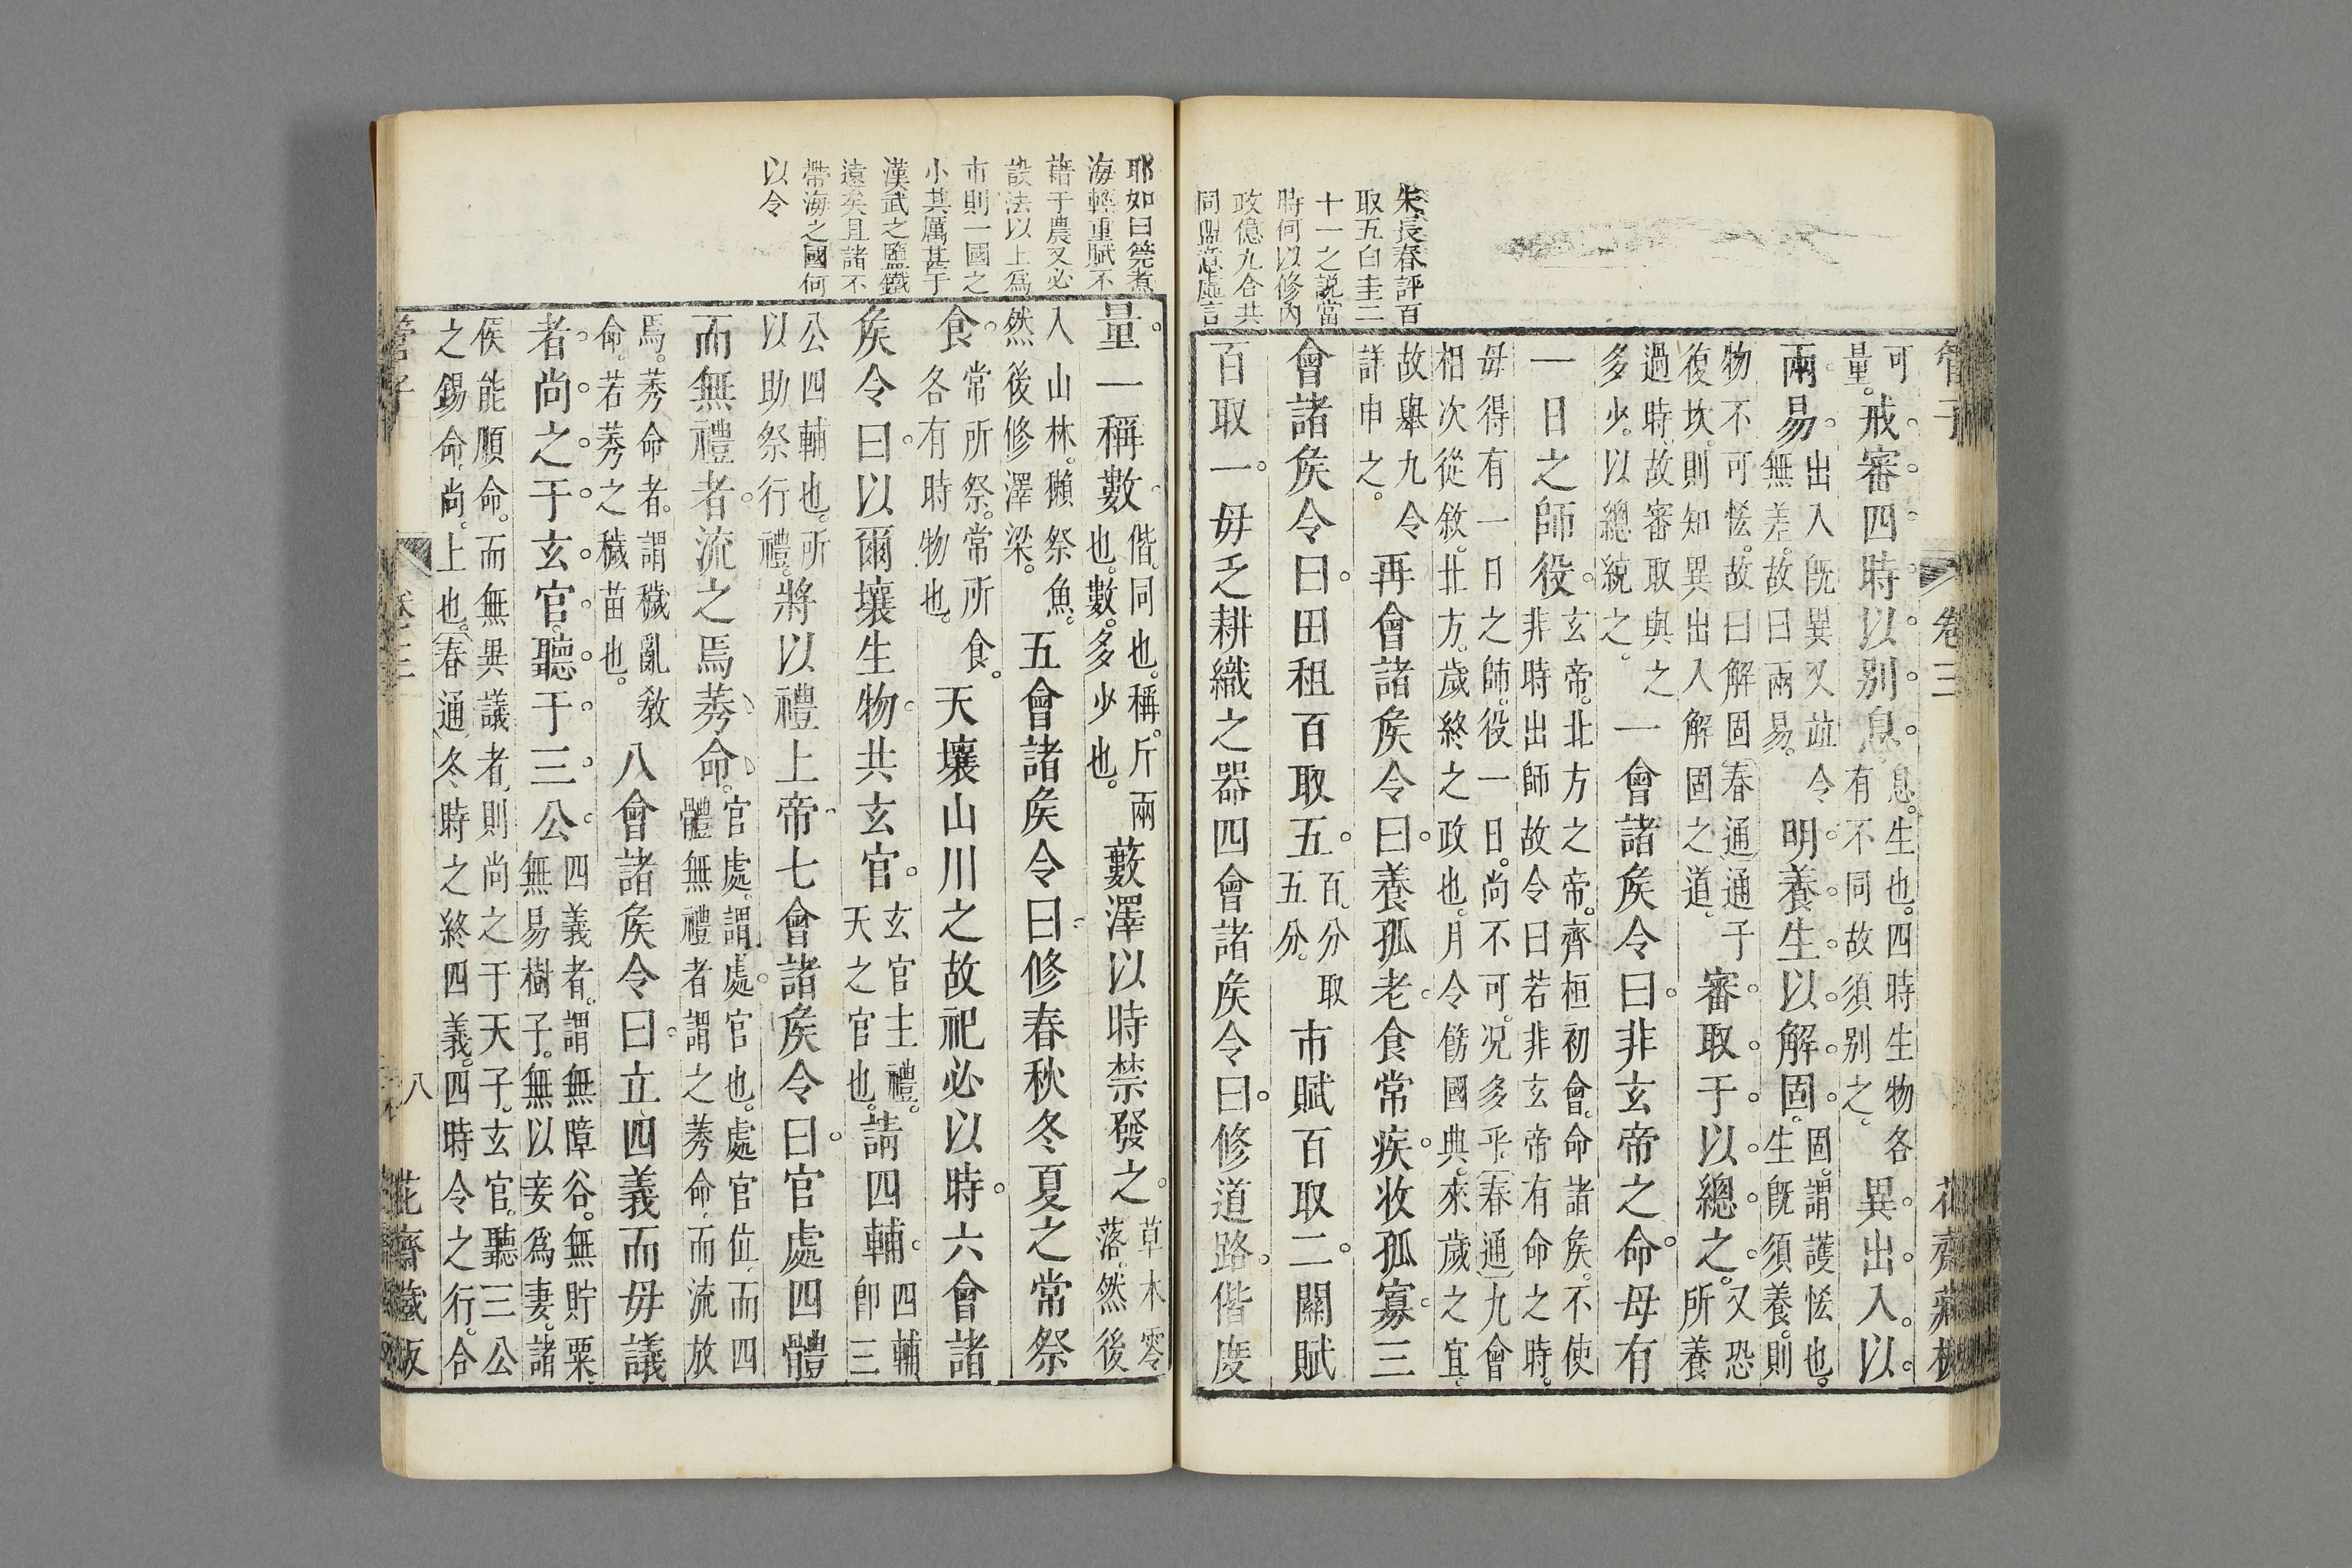 管子 卷三 花齋藏板
朱長春評百
取五白圭二
十一之說當
時何以修內
政億九合共
同盟意虛言
可量。戒審四時以別息。息。生也。四時生物各有不同故須別之。異出入以
兩易。出入旣異又疏令無差。故曰兩易。明養生以解固。固。謂護恡也。生旣須養。則
物不可恡。故曰解固(春通)通子復坎。則知異出入解固之道。審取于以總之。又恐所養
過時。故審取與之多少。以總統之。一會諸矦令曰。非玄帝之命。毋有
一日之師役。玄帝。北方之帝。齊桓初會。命諸矦。不使非時出師故令曰若非玄帝有命之時。
毋得有一日之師。役一日。尚不可。况多乎(春通)九會相次從敘。北方。歲終之政也。月令飭國典。來歲之宜。
故舉九令詳申之。再會諸矦令曰。養孤老。食常疾。收孤寡。三
會諸矦令曰。田租百取五。百分取五分。市賦百取二。關賦
百取一。毋乏耕織之器四會諸矦令曰。修道路。偕度
耶如曰筦煮
海輕重賦不
藉于農又必
設法以上爲
市則一國之
小其厲甚于
漢武之鹽鐵
遠矣且諸不
帶海之國何
以令
量。一稱數。偕。同也。稱。斤兩也。數。多少也。藪澤以時禁發之。草木零落。然後
入山林。獺祭魚。然後修澤梁。五會諸矦令曰。修春秋冬夏之常祭
食。常所祭。常所食。各有時物也。天壤山川之故祀必以時。六會諸
矦令曰。以爾壤生物。共玄官。玄官主禮。天之官也。請四輔。四輔即三
公四輔也。所以助祭行禮。將以禮上帝。七會諸矦令曰。官處四體
而無禮者。流之焉莠命。官處。謂處官也。處官位。而四體無禮者謂之莠命。而流放
焉。莠命者。謂穢亂敎命。若莠之穢苗也。八會諸矦令曰。立四義而毋議
者。尚之于玄官。聽于三公。四義者。謂無障谷。無貯粟。無易樹子。無以妾爲妻。諸
侯能順命。而無異議者。則尚之于天子。玄官。聽三公之錫命。尚。上也。(春通)冬時之終四義。四時令之行。合
管子 卷三 八 花齋藏板